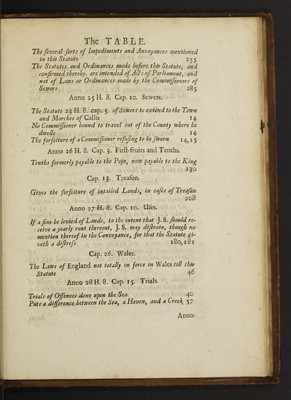 The TABLE.
The several sorts of Impediments and Annoyances mentioned
in this Statute 255
The Statutes and Ordinances made before this Statute, and
confirmed thereby, are intended of Acts of Parliament, and
not of Laws or Ordinances made by the Commissioners of
Sewers 285
Anno 25 H. 8. Cap. 10. Sewers.
The Statute 23 H. 8. cap. 5. of Sewers to extend to the Town
and Marches of Callis 14
No Commissioner bound to travel out of the County where he
dwells 14
The forfeiture of a Commissioner refusing to be sworn 14,15
Anno 26 H. 8. Cap. 3. First-fruits and Tenths.
Tenths formerly payable to the Pope, now payable to the King
130
Cap. 13. Treason.
Gives the forfeiture of intailed Lands, in cases of Treason
208
Anno 27 H. 8. Cap. 10. Uses.
If a fine be levied of Lands, to the intent that J. S. should re-
ceive a yearly rent thereout, J. S. may distrain, though no
mention thereof in the Conveyance, for that the Statute gi-
veth a distress 180,181
Cap. 26. Wales.
The Laws of England not totally in force in Wales till this
Statute 46
Anno 28 H. 8. Cap. 15. Trials.
Trials of Offences done upon the Sea 40
Puts a difference between the Sea, a Haven, and a Creek 57
Anno